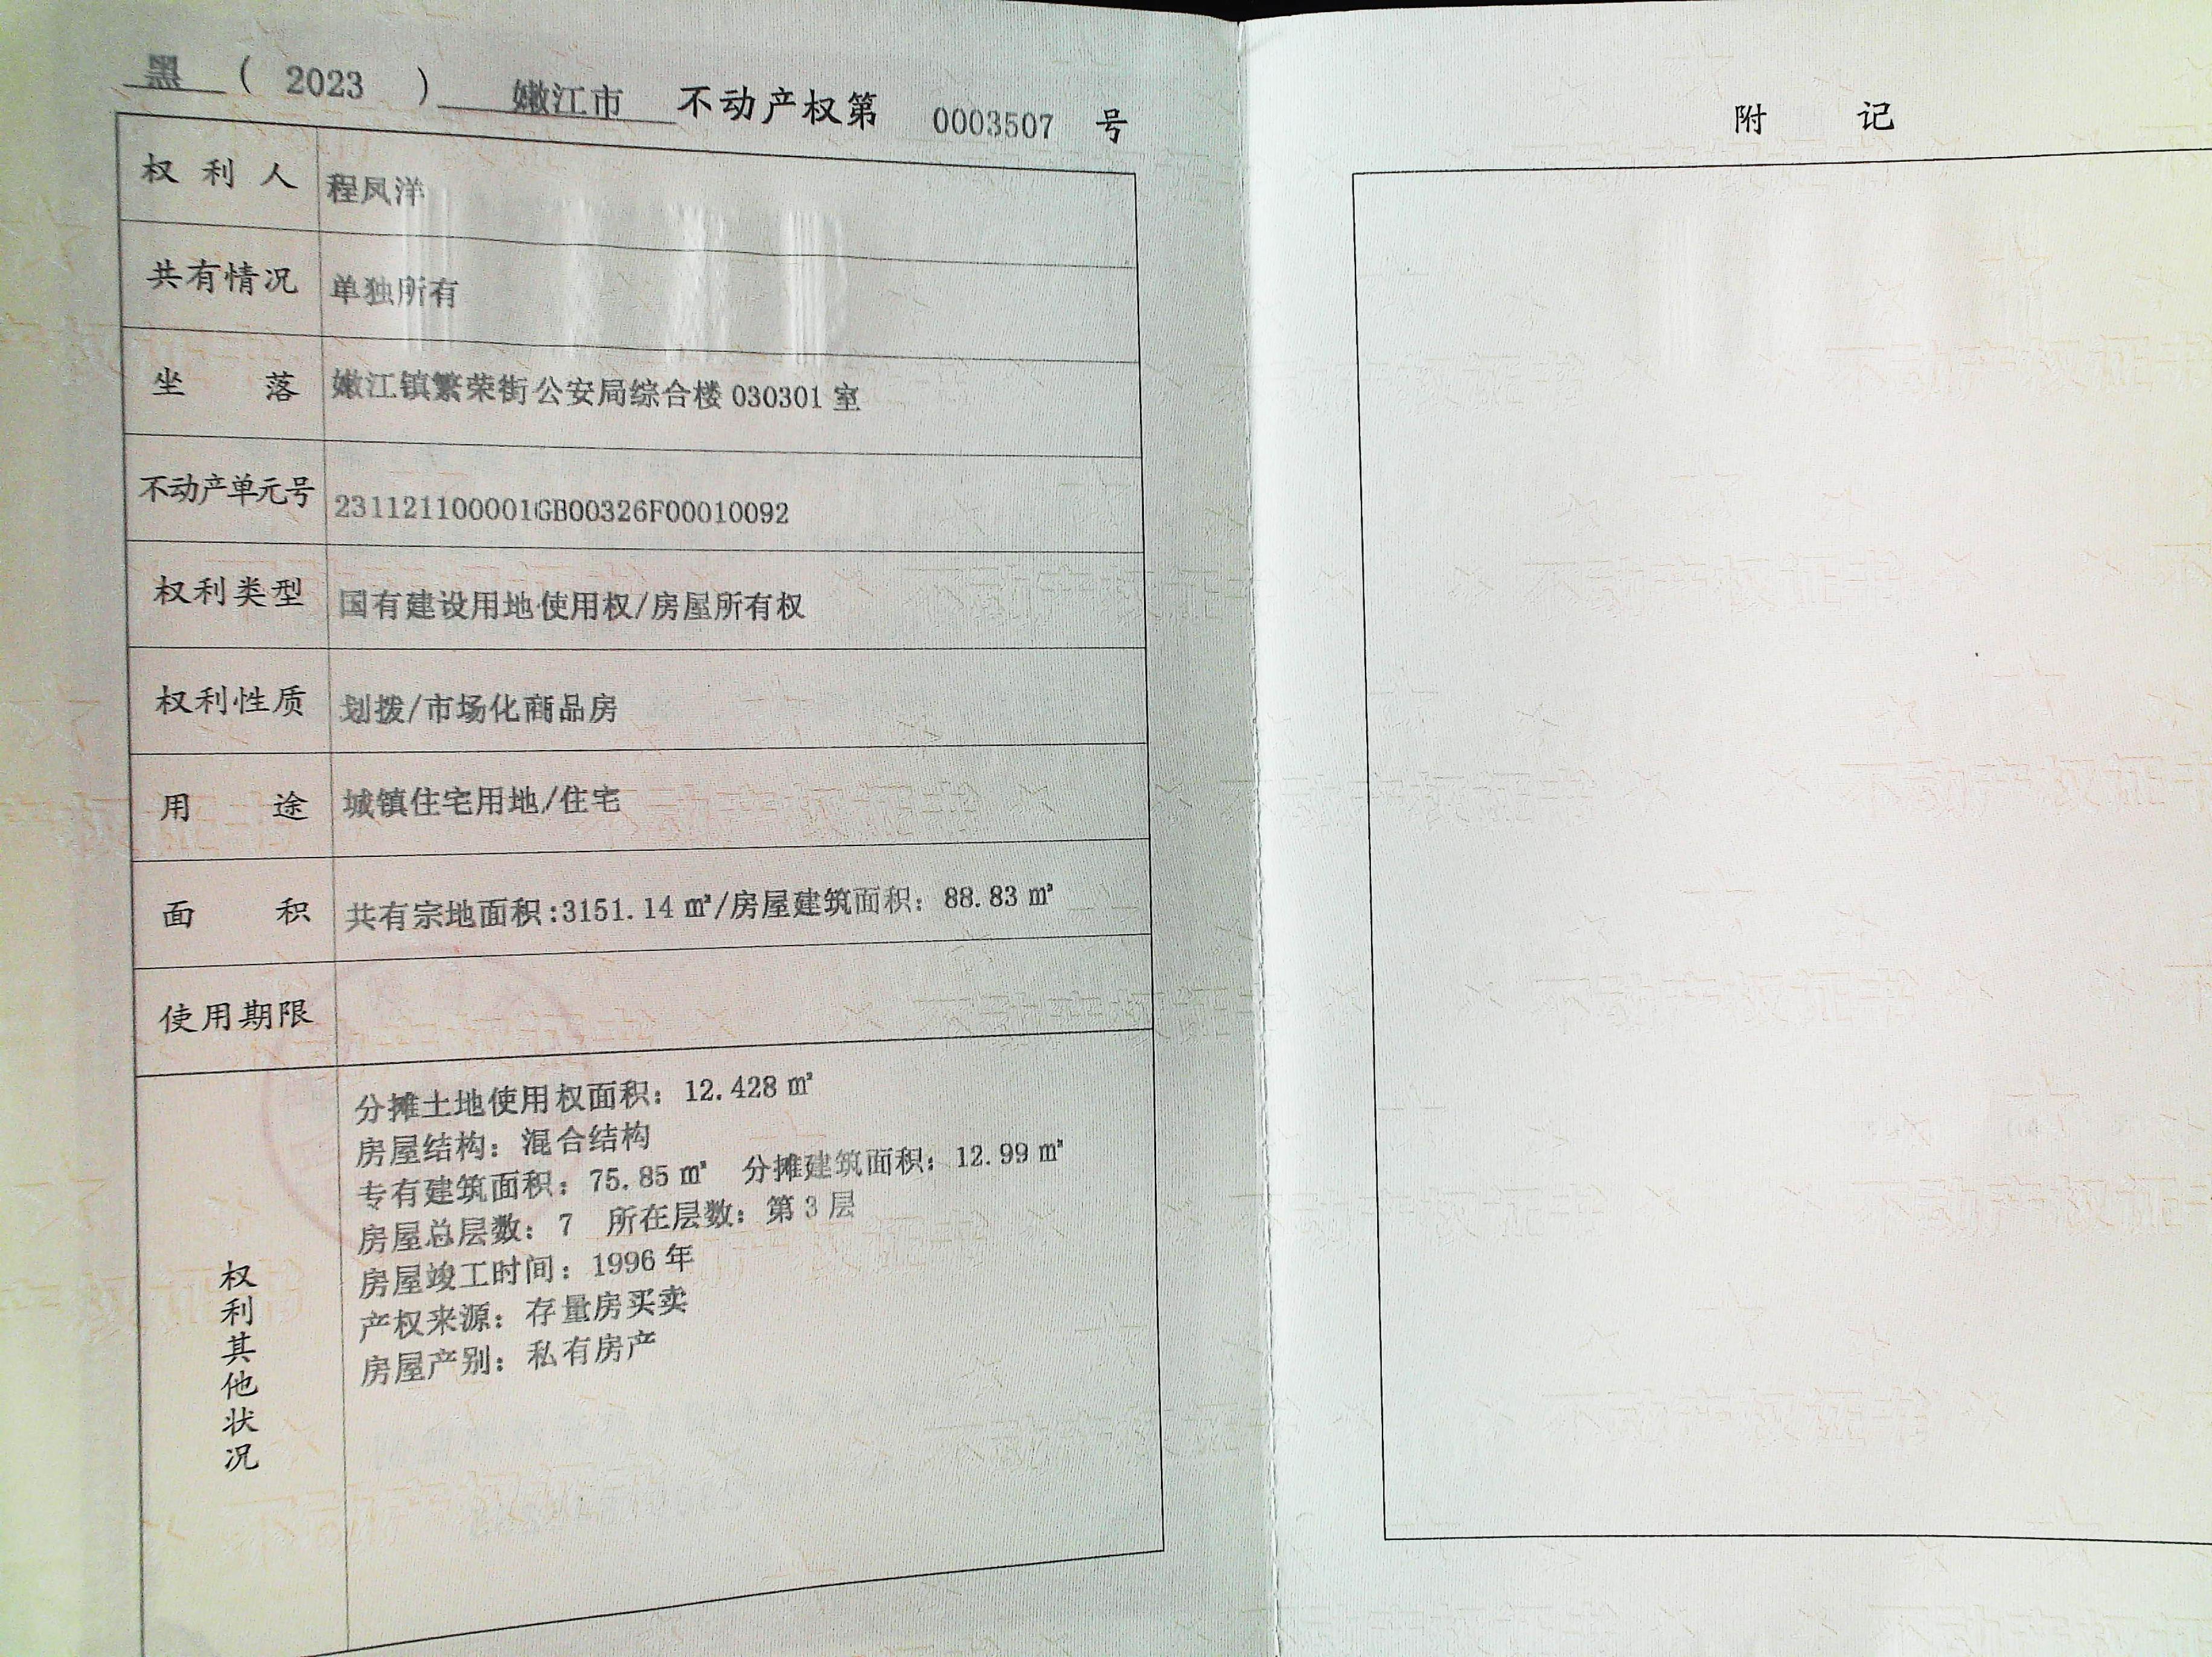 黑 ( 2023 ) 嫩江市 不动产权第 0003507 号
权利人 程凤洋
共有情况 单独所有
坐落 嫩江镇繁荣街公安局综合楼 030301 室
不动产单元号 231121100001GB00326F00010092
权利类型 国有建设用地使用权/房屋所有权
权利性质 划拨/市场化商品房
用途 城镇住宅用地/住宅
面积 共有宗地面积:3151.14 ㎡/房屋建筑面积: 88.83 ㎡
使用期限
权利其他状况
分摊土地使用权面积: 12.428 ㎡
房屋结构: 混合结构
专有建筑面积: 75.85 ㎡ 分摊建筑面积: 12.99 ㎡
房屋总层数: 7 所在层数: 第 3 层
房屋竣工时间: 1996 年
产权来源: 存量房买卖
房屋产别: 私有房产
附记